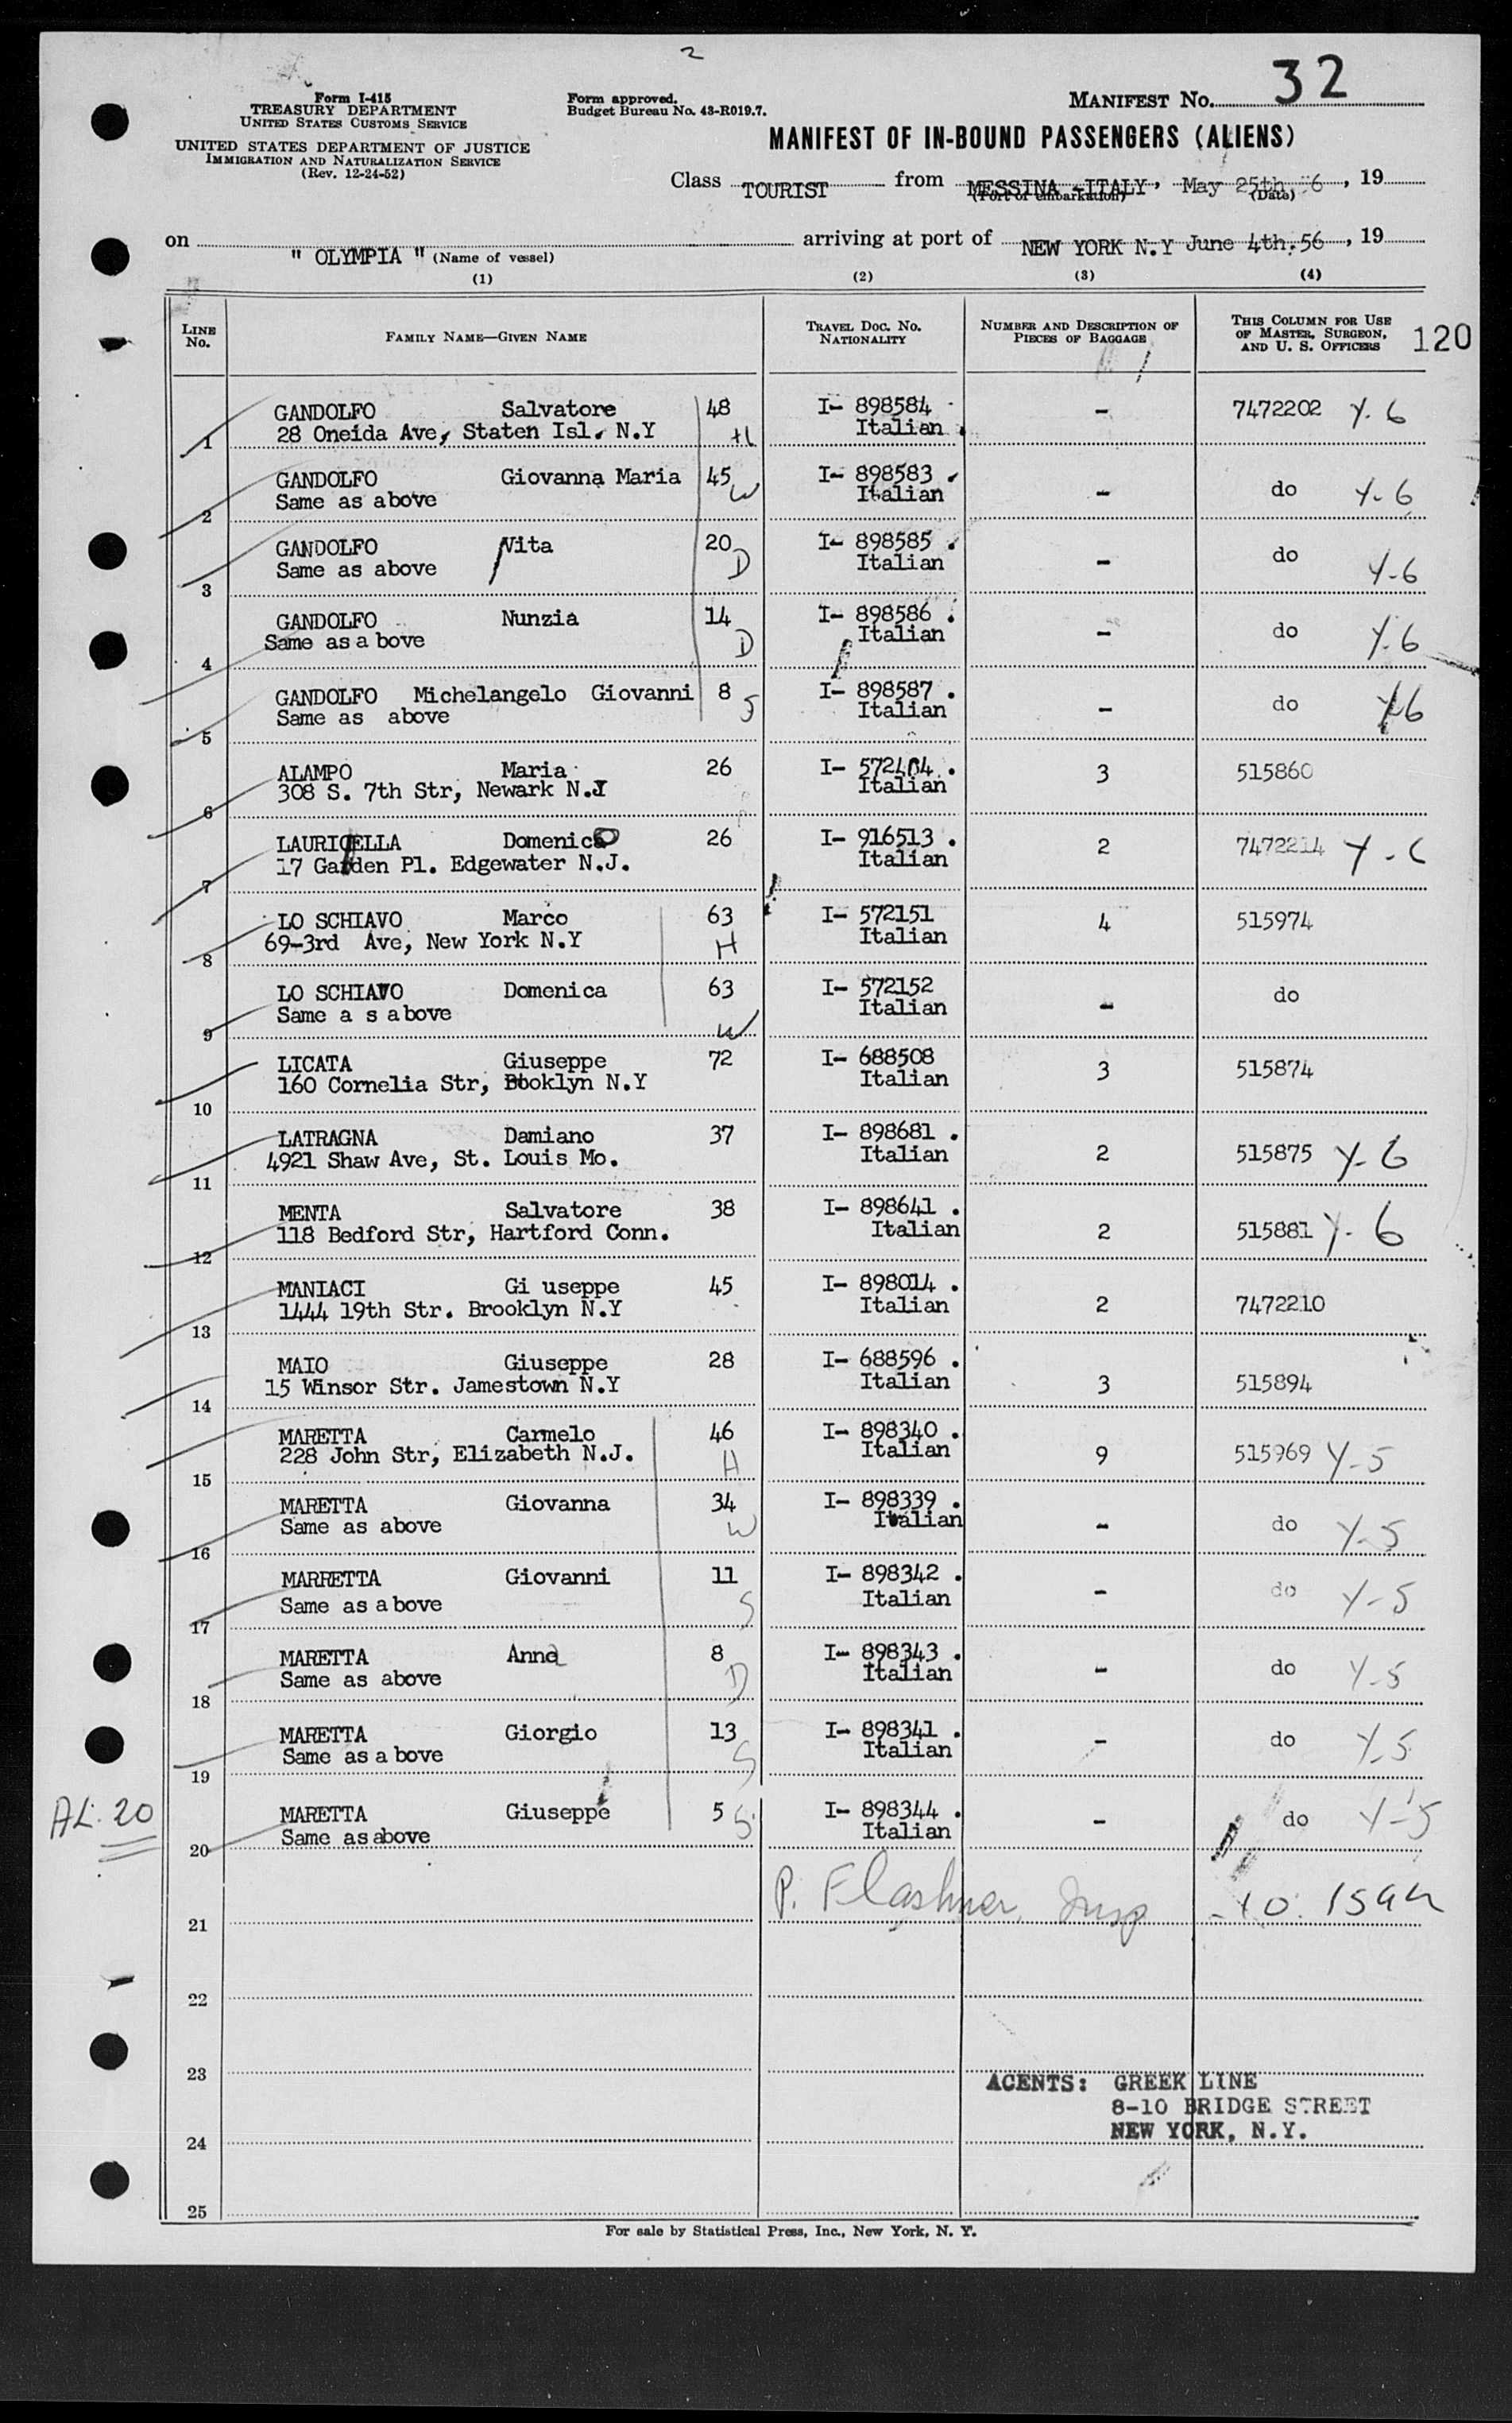 2
32
Form I-415
TREASURY DEPARTMENT
UNITED STATES CUSTOMS SERVICE
UNITED STATES DEPARTMENT OF JUSTICE
IMMIGRATION AND NATURALIZATION SERVICE
(Rev. 12-24-52)
Form approved.
Budget Bureau No. 43-R019.7.
MANIFEST NO.
MANIFEST OF IN-BOUND PASSENGERS (ALIENS)
Class TOURIST from MESSINA -ITALY, May 25th, 56, 19
(Port of embarkation) (Date)
on " OLYMPIA " (Name of vessel) arriving at port of NEW YORK N.Y June 4th, 56, 19
(1) (2) (3) (4)
LINE NO. FAMILY NAME—GIVEN NAME TRAVEL DOC. NO. NATIONALITY NUMBER AND DESCRIPTION OF PIECES OF BAGGAGE THIS COLUMN FOR USE OF MASTER, SURGEON, AND U. S. OFFICERS 120
1 GANDOLFO Salvatore 48 H I- 898584 - 7472202 Y-6
28 Oneida Ave, Staten Isl. N.Y Italian
2 GANDOLFO Giovanna Maria 45 W I- 898583 - do Y-6
Same as above Italian
3 GANDOLFO Vita 20 D I- 898585 - do Y-6
Same as above Italian
4 GANDOLFO Nunzia 14 D I- 898586 - do Y-6
Same as a bove Italian
5 GANDOLFO Michelangelo Giovanni 8 S I- 898587 - do Y-6
Same as above Italian
6 ALAMPO Maria 26 I- 3 515860
308 S. 7th Str, Newark N.J Italian
7 LAURICELLA Domenico 26 I- 916513 2 7472214 Y-6
17 Garden Pl. Edgewater N.J. Italian
8 LO SCHIAVO Marco 63 H I- 572151 4 515974
69-3rd Ave, New York N.Y Italian
9 LO SCHIAVO Domenica 63 W I- 572152 - do
Same a s above Italian
10 LICATA Giuseppe 72 I- 688508 3 515874
160 Cornelia Str, N.Y Italian
11 LATRAGNA Damiano 37 I- 898681 2 515875 Y-6
4921 Shaw Ave, St. Louis Mo. Italian
12 MENTA Salvatore 38 I- 898641 2 515881 Y-6
118 Bedford Str, Hartford Conn. Italian
13 MANIACI Gi useppe 45 I- 898014 2 7472210
1444 19th Str. Brooklyn N.Y Italian
14 MAIO Giuseppe 28 I- 688596 3 515894
15 Winsor Str. Jamestown N.Y Italian
15 MARETTA Carmelo 46 H I- 898340 9 515969 Y-5
228 John Str, Elizabeth N.J. Italian
16 MARETTA Giovanna 34 W I- 898339 - do Y-5
Same as above Italian
17 MARRETTA Giovanni 11 S I- 898342 - do Y-5
Same as above Italian
18 MARETTA Anna 8 D I- 898343 - do Y-5
Same as above Italian
19 MARETTA Giorgio 13 S I- 898341 - do Y-5
Same as a bove Italian
AL. 20
20 MARETTA Giuseppe 5 S I- 898344 - do Y-5
Same as above Italian
21 P. Flashner, Insp
22
23
AGENTS: GREEK LINE
8-10 BRIDGE STREET
NEW YORK, N.Y.
24
25
For sale by Statistical Press, Inc., New York, N. Y.